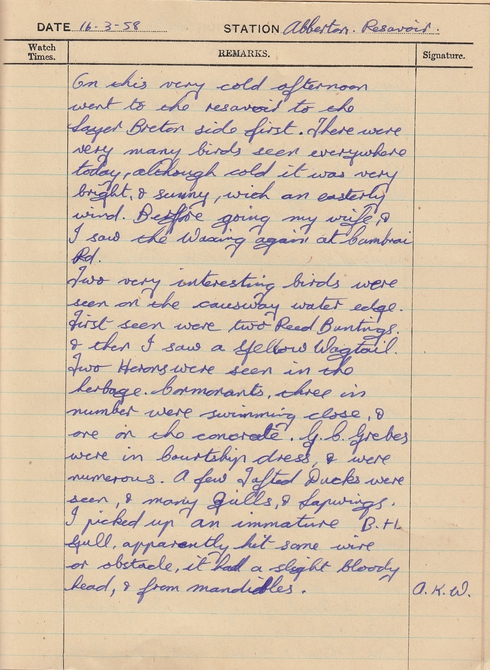 DATE 16-3-58 STATION Abberton. Resavoir.
Watch Times. REMARKS. Signature.
On this very cold afternoon
went to the resavoir to the
Layer Breton side first. There were
very many birds seen everywhere
today, although cold it was very
bright, & sunny, with an easterly
wind. Before going my wife, &
I saw the Waxing again at Cambrai
Rd.
Two very interesting birds were
seen on the causway water edge.
First seen were two Reed Buntings.
& then I saw a Yellow Wagtail.
Two Herons were seen in the
herbage. Cormorants, three in
number were swimming close, &
one on the concrete. G.C. Grebes
were in Courtship dress, & were
numerous. A few Tufted Ducks were
seen, & many Gulls, & Lapwings.
I picked up an immature B.H.
Gull, apparently hit some wire
or obstacle, it had a slight bloody
head, & from mandibles.
A.K.W.